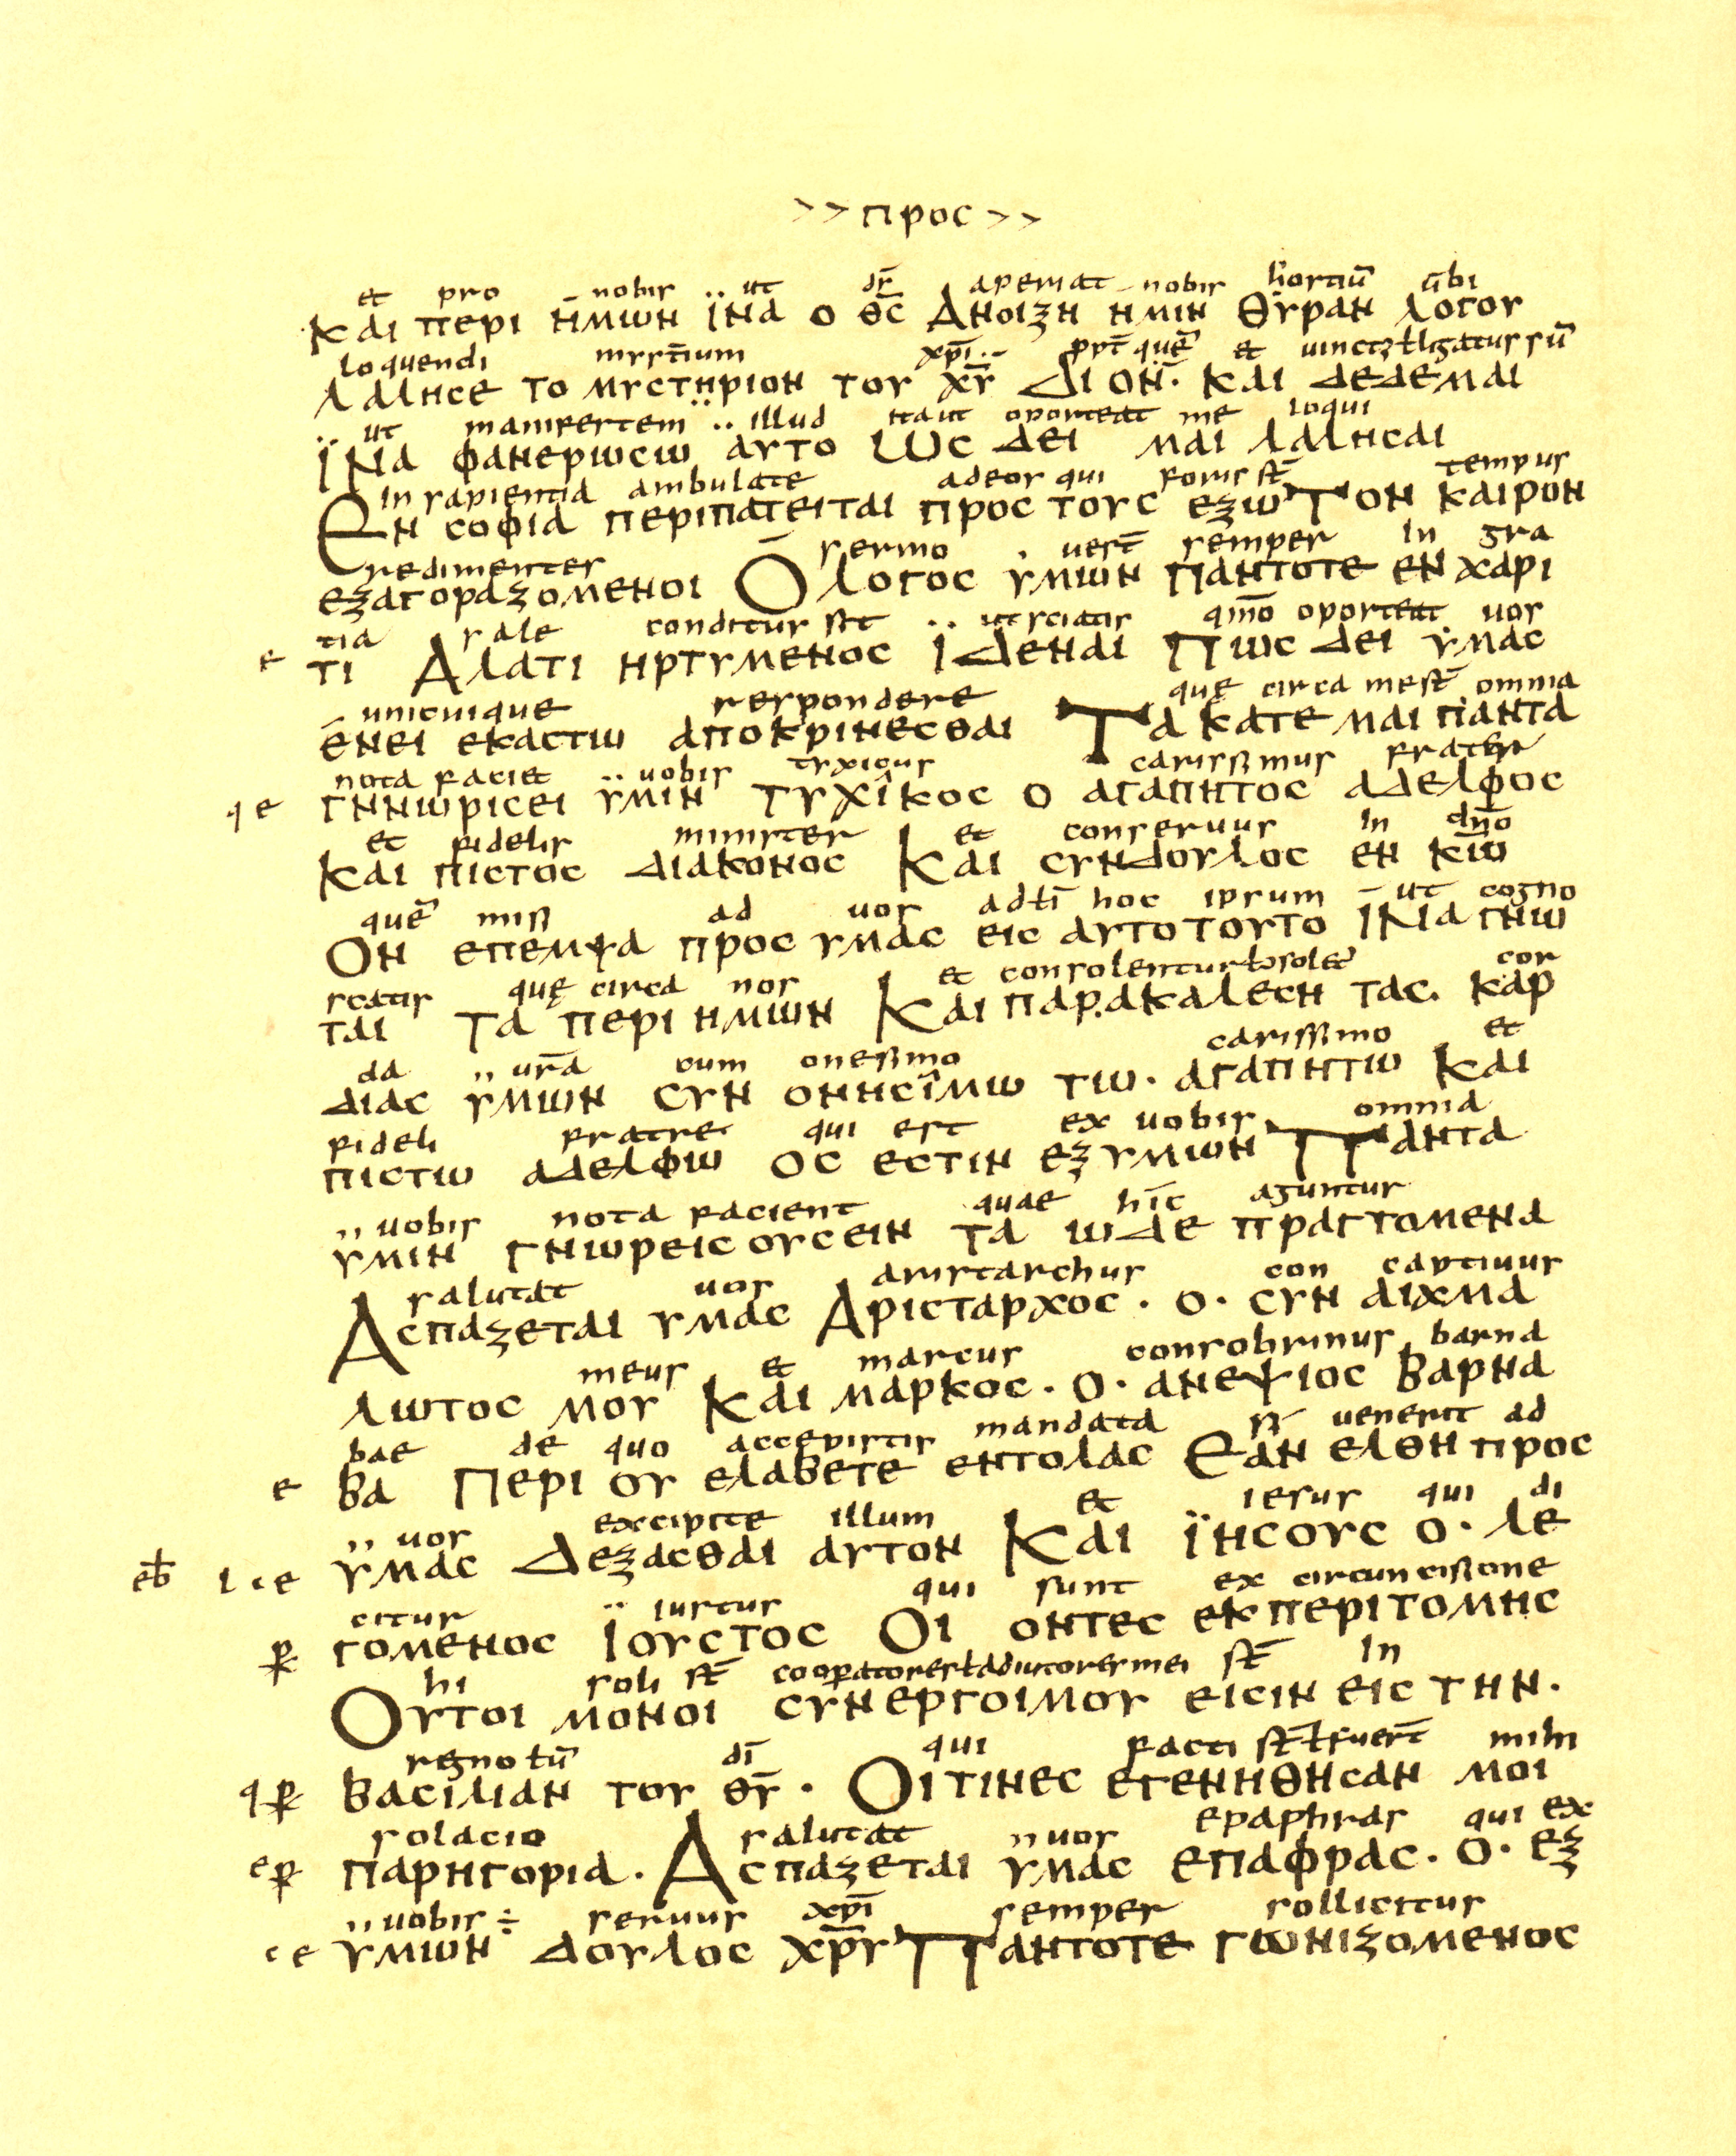 >> προc >>
et pro nobis ut dr̄ aperiat nobis hostiū ūbi
και περι ημων ϊνα ο θ̅c̅ Ανοιξη ημιν θυραν λογου
loquendi mysteriū xp̄i ppt̄ quē et uinctus ł ligatus sū
λαληcε το μυcτηριον του χ̅υ̅ Δι ον· και δεδεμαι
ut manifestem illud ita ut oporteat me loqui
ϊνα φανερωcω αυτο ωc δει μαι λαληcαι
in sapientia ambulate ad eos qui foris st̄ tempus
Εν cοφια περιπατειται προc τουc εξω Τον καιρον
redimentes sermo uest̄ semper in gra
εξαγοραζομενοι Ο λογοc υμων παντοτε εν χαρι
tia sale conditus sit ut sciatis qm̄o oporteat uos
ε τι Αλατι ηρτυμενοc Ιδεναι Πωc δει υμαc
unicuique respondere quę circa me st̄ omnia
ενει εκαcτω αποκρινεcθαι Τα κατε μαι παντα
nota faciet uobis tyxicus carissimus frater
qε γηνωριcει υμιν τυχικοc ο αγαπητοc αδελφοc
et fidelis minister et conseruus in dn̄o
και πιcτοc διακονοc Και cυνδουλοc εν κ̅ω̅
quē misi ad uos ad ł ī hoc ipsum ut cogno
Ον επεμψα προc υμαc ειc αυτο τουτο ινα γνω
scatis quę circa nos et consolentur ł soletr cor
ται Τα περι ημων Και παρακαλεcη ταc. καρ
da ur̄a cum onesimo carissimo et
διαc υμων cυν ονηcιμω τω· αγαπητω Και
fideli fratre qui est ex uobis omnia
πιcτω αδελφω οc εcτιν εξ υμων Παντα
uobis nota facient quae hīc aguntur
υμιν γνωρειcουcειν τα ωδε πραγτομενα
salutat uos aristarchus con captiuus
Αcπαζεται υμαc Αριcταρχοc · ο · cυν αιχμα
meus et marcus consobrinus barna
λωτοc μου Και μαρκοc · ο · ανεψιοc βαρνα
bae de quo accepistis mandata si uenerit ad
ε βα Περι ου ελαβετε εντολαc Εαν ελθη προc
uos excipite illum et iesus qui di
υμαc Δεξαcθαι αυτον Και ϊηcουc ο · λε
citur iustus qui sunt ex circumcisione
γομενοc Ϊουcτοc Οι οντεc εκ περιτομηc
hi soli st̄ cooperatores ł adiutores mei st̄ in
Ουτοι μονοι cυνεργοι μου ειcιν ειc την ·
regno ł ū dī qui facti st̄ ł fuert̄ mihi
βαcιλιαν του θ̅υ̅ · Οιτινεc εγενηθηcαν μοι
solacio salutat uos epaphras qui ex
παρηγορια · Αcπαζεται υμαc επαφραc · ο · εξ
uobis ÷ seruus xp̄i semper sollicitus
cε υμων δουλοc χ̅ρ̅υ̅ Παντοτε γωνιζομενοc